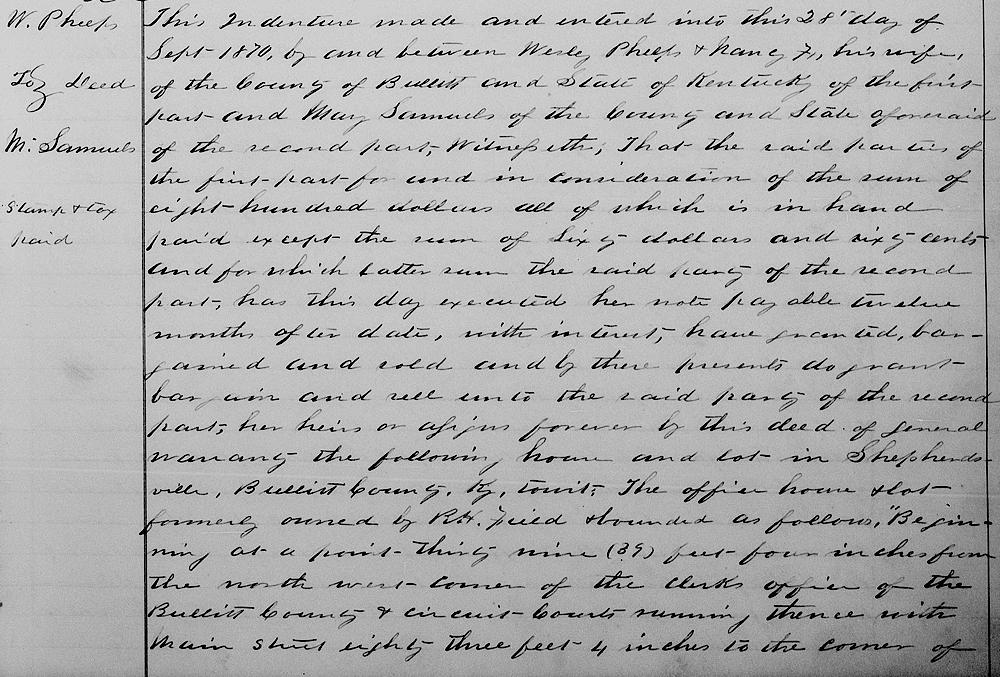 W. Phelps
To } Deed
M. Samuels
Stamp & tax
paid
This Indenture made and entered into this 28' day of
Sept 1870, by and between Wesley Phelps & Nancy F, his wife,
of the County of Bullitt and State of Kentucky of the first
part and Mary Samuels of the County and State aforesaid
of the second part, Witnesseth, That the said parties of
the first part for and in consideration of the sum of
eight hundred dollars all of which is in hand
paid except the sum of Sixty dollars and sixty cents
and for which latter sum the said party of the second
part, has this day executed her note payable twelve
months after date, with interest, have granted, bar-
gained and sold and by these presents do grant
bargain and sell unto the said party of the second
part, her heirs or assigns forever by this deed of general
warranty the following house and lot in Shepherds-
ville, Bullitt County, Ky, towit; The office house & lot
formerly owned by R.H. Field & bounded as follows, "Begin-
ning at a point thirty nine (39) feet four inches from
the north west corner of the clerks office of the
Bullitt County & circuit Courts running thence with
Main Street eighty three feet 4 inches to the corner of